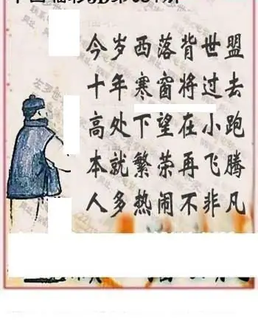 今岁西落背世盟
十年寒窗将过去
高处下望在小跑
本就繁荣再飞腾
人多热闹不非凡